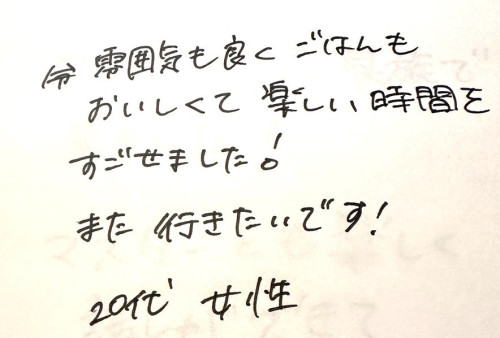 雰囲気も良く ごはんも
おいしくて 楽しい 時間を
すごせました!
また 行きたいです!
20代 女性